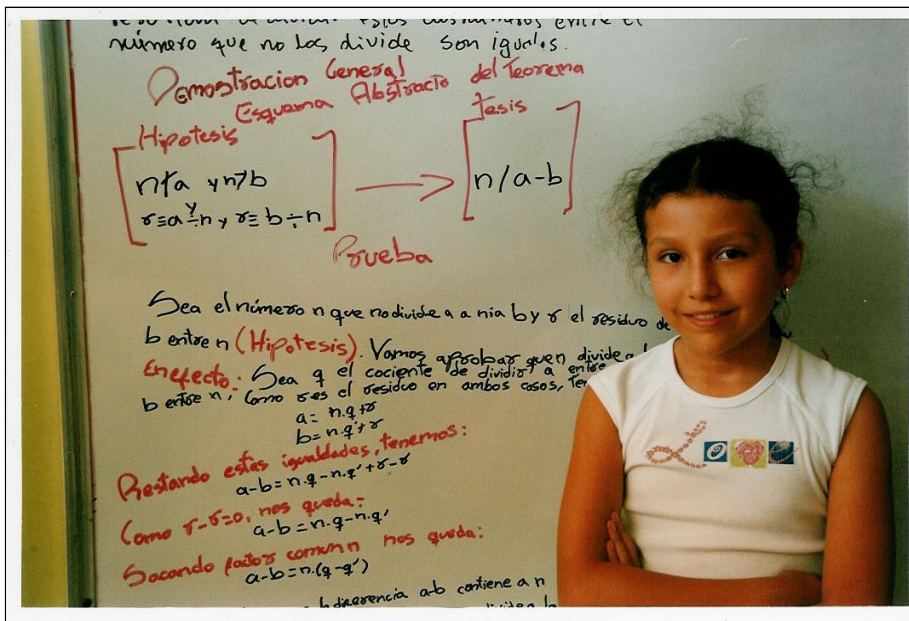 número que no los divide son iguales.
Demostracion General
Esquema Abstracto del Teorema
Hipotesis
Tesis
n∤a y n∤b
y
r≡a÷n y r≡b÷n
n/a-b
Prueba
Sea el número n que no divide a a ni a b y r el residuo de
b entre n (Hipotesis). Vamos a probar que n divide a
En efecto: Sea q el cociente de dividir a entre
b entre n; Como r es el residuo en ambos casos,
a= n.q+r
b= n.q'+r
Restando estas igualdades, tenemos:
a-b= n.q-n.q'+r-r
Como r-r=0, nos queda:
a-b=n.q-n.q'
Sacando factor comun n nos queda:
a-b=n.(q-q')
diferencia a-b contiene a n